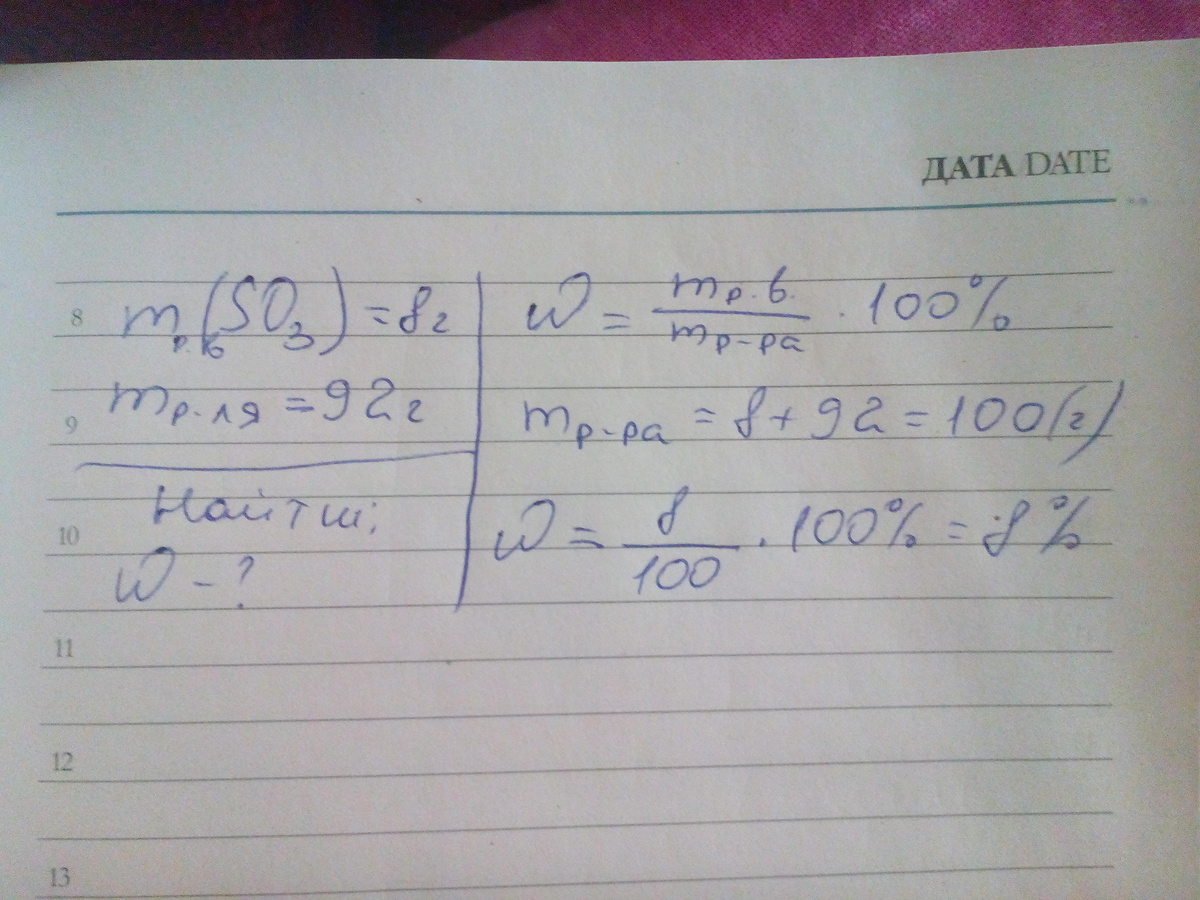 ДАТА DATE
8
m р.в (SO₃) = 8г
m р-ля = 92г
9
Найти:
10
ω - ?
ω = m р.в. / m р-ра · 100%
m р-ра = 8 + 92 = 100(г)
ω = 8 / 100 · 100% = 8%
11
12
13